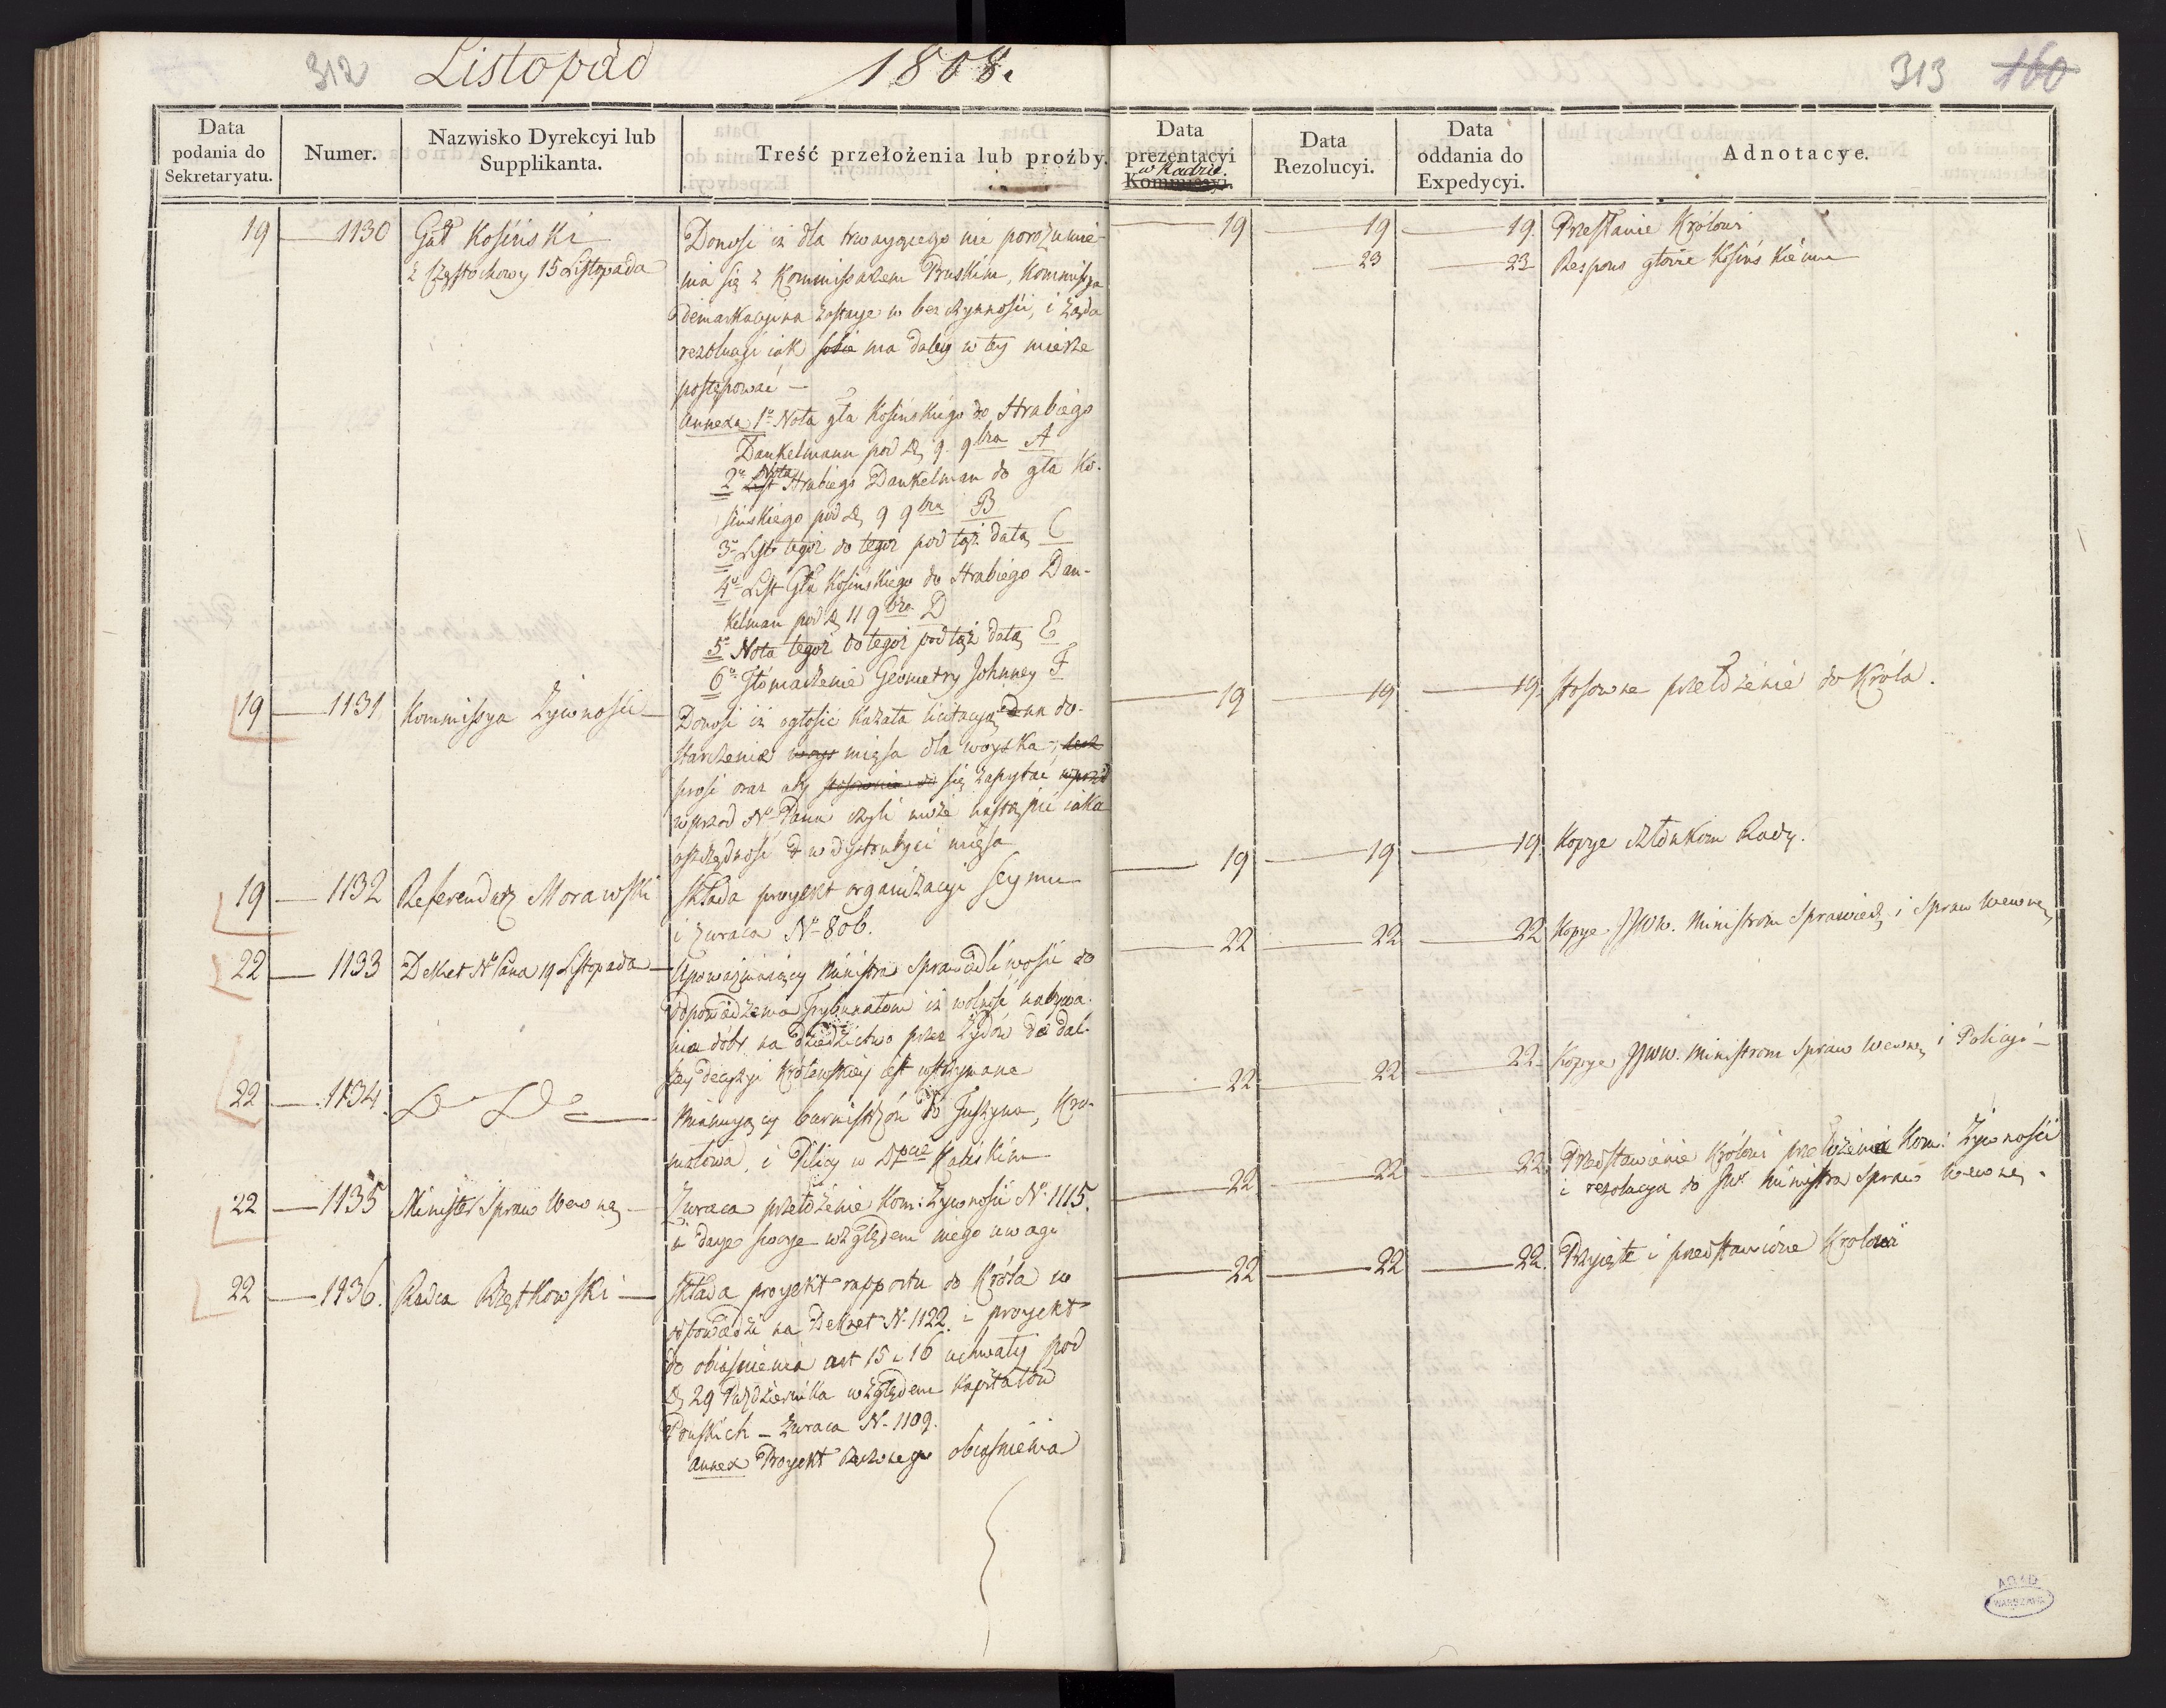 312 Listopad 1808.
313 160
Data podania do Sekretaryatu.
Numer.
Nazwisko Dyrekcyi lub Supplikanta.
Treść przełożenia lub proźby.
Data prezentacyi w Radzie. Kommissyi.
Data Rezolucyi.
Data oddania do Expedycyi.
Adnotacye.
19 1130 Gał Kosiński
z Częstochowy 15 Listopada
Donosi iż dla trwaiącego nie porozumie-
nia się z Kommissarzem Pruskim, Kommissya
demarkacyina zostaie w bezczynności, i żąda
rezolucyi iak sobie ma daley w tey mierze
postępować —
Annexa 1o Nota gła Kosińskiego do Hrabiego
Dankelmann pod D. 9. 9bra A
2o List Nota Hrabiego Dankelman do gła Ko-
sińskiego pod D. 9 9bra B
3o List tegoż do tegoż pod tąż datą C
4o List Gła Kosińskiego do Hrabiego Dan-
kelman pod D. 11 9bra D
5o Nota tegoż do tegoż pod tąż datą E
6o Tłomaczenie Geometry Johnney F
19 19 19. Przesłanie Królowi
23 23 Respons głowi Kosińskiému
19 1131 Kommissya Żywności
Donosi iż ogłosić kazała licitacyą na do-
starczenie mięsa dla woyska,
prosi oraz aby się zapytać
wprzod No Pana czyli może nastąpić iaka
oszczędność w dystrybucyi mięsa
19 19 19. Stosowne przełożenie do Króla.
19 1132 Referendarz Morawski
Składa proyekt organizacyi Seymu
i zwraca No 806.
19 19 19. Kopye członkom Rady.
22 1133 Dekret No Pana 19 Listopada
Upoważniaiący Ministra Sprawiedliwości do
odpowiedzenia Trybunałom iż wolność nabywa-
nia dóbr na dziedzictwo przez Żydów do dal-
szey decyzyi Królewskiey iest wstrzymana
22 22 22 Kopye JJWW. Ministrom Sprawiedl. i Spraw Wewnę.
22 1134. D D
Mianuiący burmistrzów do Tuszyna, Kro-
mołowa, i Pilicy w Dpcie Kaliskim
22 22 22. Kopye JJWW. Ministrom Spraw Wewnę. i Policyi
22 1135 Minister Spraw Wewnę.
Zwraca przełożenie Kom: Żywności No 1115.
i daie swoye względem niego uwagi
22 22 22. Przedstawienie Królowi przełożenia Kom: Żywności
i rezolucya do JW. Ministra Spraw Wewnę.
22 1136. Radca Rzętkowski
Składa proyekt rapportu do Króla w
odpowiedzi na Dekret No 1122. i proyekt
do obiaśnienia art 15 i 16 uchwały pod
D. 29 Października względem Kapitałów
Pruskich — Zwraca No 1109.
Annex Proyekt rzeczonego obiaśnienia
22 22 22. Przyięte i przedstawione Królowi
AGAD
WARSZAWA